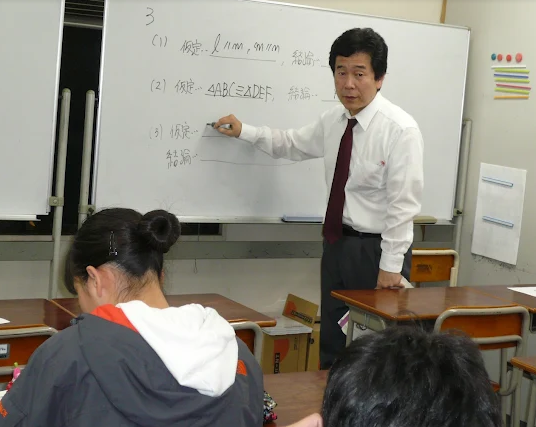 3
(1) 仮定… l // m , m // n , 結論…
(2) 仮定… △ABC≡△DEF, 結論…
(3) 仮定…
結論…